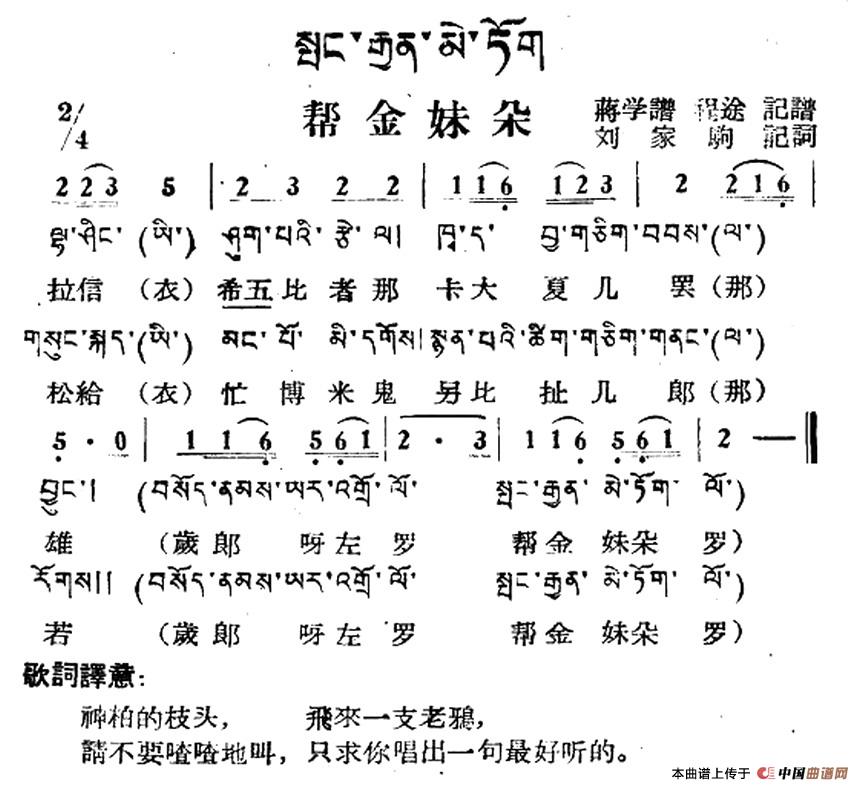 སྤང་རྒྱན་མེ་ཏོག
帮金妹朵
2/4
蔣学譜 程途 記譜
刘家駒 記詞
2 2 3 5 | 2 3 2 2 | 1 1 6 1 2 3 | 2 2 1 6 |
ལྷ་ཤིང་(ཡི་) ཤུག་པའི་རྩེ་ལ། ཁྭ་ད་ བྱ་གཅིག་བབས་(ལ་)
拉信（衣）希五比者那 卡大 夏几 罢（那）
གསུང་སྐད་(ཡི་) མང་པོ་ མི་དགོས། སྙན་པའི་ཚིག་གཅིག་གནང་(ལ་)
松給（衣）忙博米鬼 另比 扯几 郎（那）
5 · 0 | 1 1 6 5 6 1 | 2 · 3 | 1 1 6 5 6 1 | 2 — ‖
བྱུང་། (བསོད་ནམས་ཡར་འགྲོ་ལོ་ སྤང་རྒྱན་མེ་ཏོག་ལོ་)
雄 （歲郎 呀左 罗 帮金 妹朵 罗）
རོགས།། (བསོད་ནམས་ཡར་འགྲོ་ལོ་ སྤང་རྒྱན་མེ་ཏོག་ལོ་)
若 （歲郎 呀左 罗 帮金 妹朵 罗）
歌詞譯意：
神柏的枝头， 飛來一支老鴉，
請不要喳喳地叫，只求你唱出一句最好听的。
本曲谱上传于 中国曲谱网